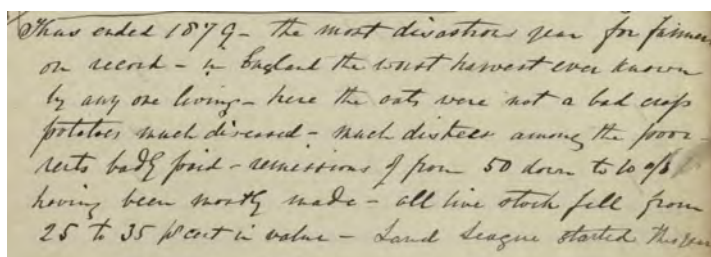 Thus ended 1879 - the most disastrous year for farmers
on record - in England the worst harvest ever known
by any one living - here the oats were not a bad crop
potatoes much diseased - much distress among the poor -
rents badly paid - remissions of from 50 down to 10 o/o
having been mostly made - all live stock fell from
25 to 35 p cent in value - Land League started this year